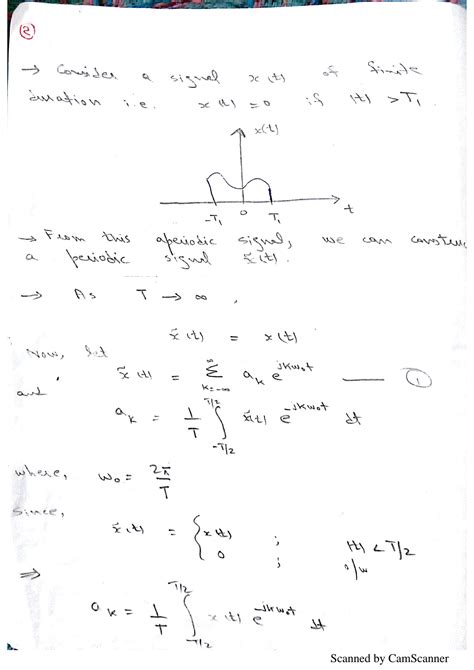 ②
→ Consider a signal x(t) of finite
duration i.e. x(t) = 0 if |t| > T₁
x(t)
-T₁ 0 T₁ t
→ From this aperiodic signal, we can
a periodic signal x̃(t).
→ As T → ∞,
x̃(t) = x(t)
Now, let
x̃(t) = ∑_{k=-∞}^{∞} a_k e^{jkω₀t} —— ①
and
a_k = 1/T ∫_{-T/2}^{T/2} x̃(t) e^{-jkω₀t} dt
where, ω₀ = 2π/T
since,
x̃(t) = { x(t) ; |t| < T/2
0 ; o/w
⇒
a_k = 1/T ∫_{-T/2}^{T/2} x(t) e^{-jkω₀t} dt
Scanned by CamScanner